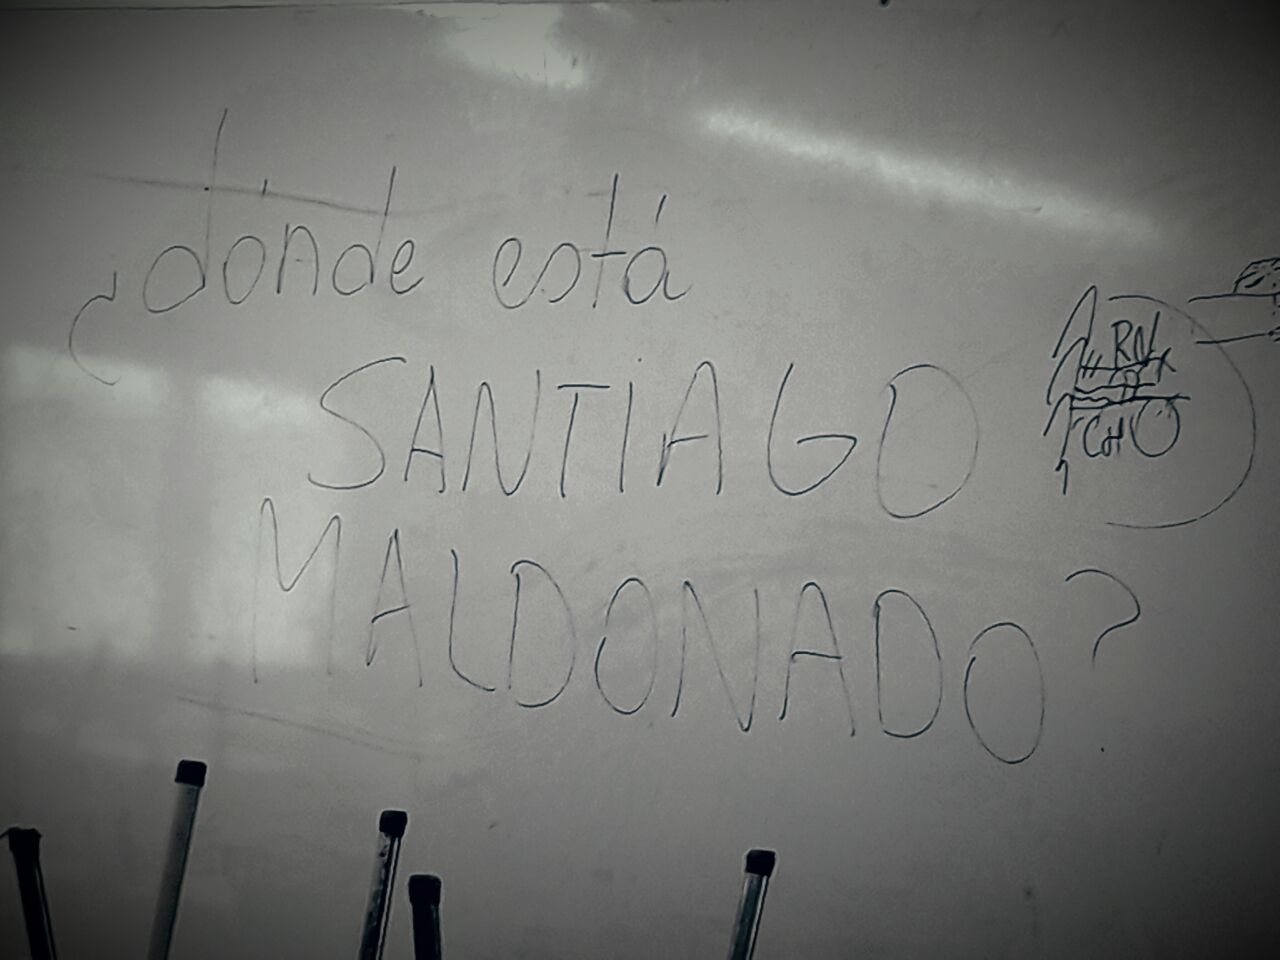 ¿donde está
SANTIAGO
MALDONADO?
RN